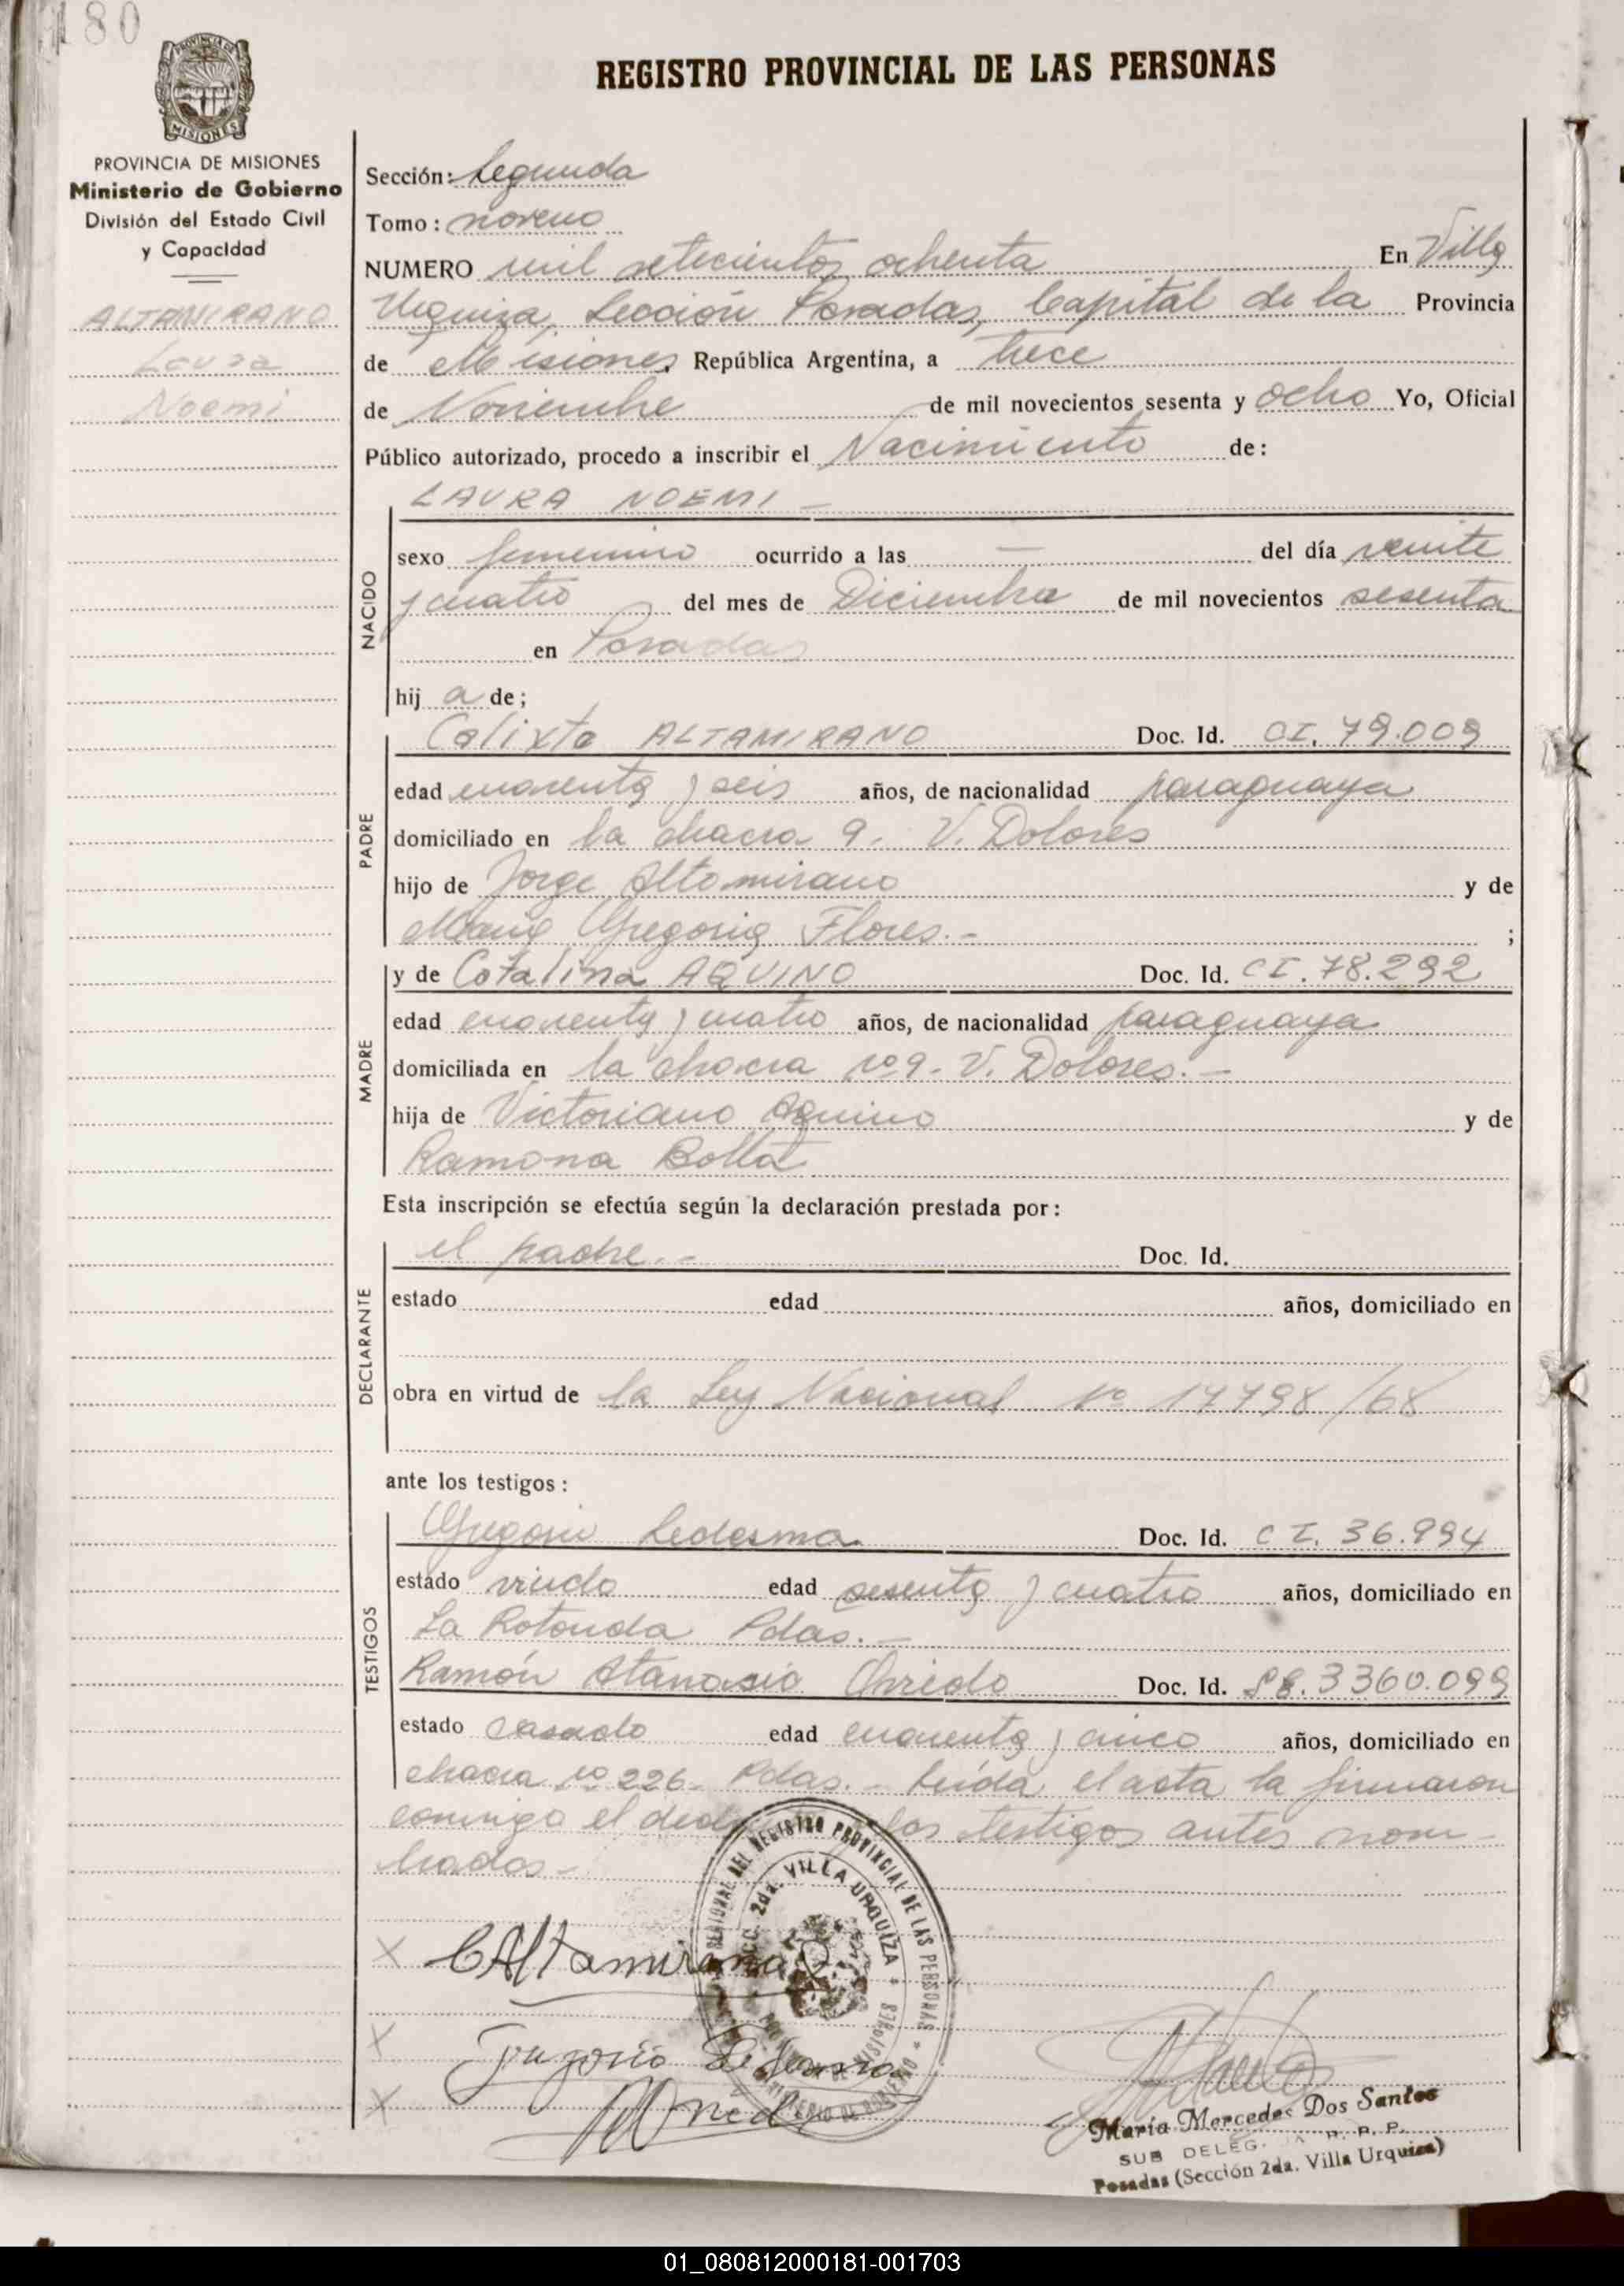 180
REGISTRO PROVINCIAL DE LAS PERSONAS
PROVINCIA DE MISIONES
MISIONES
PROVINCIA DE MISIONES
Ministerio de Gobierno
División del Estado Civil
y Capacidad
ALTAMIRANO
Laura
Noemi
Sección: Segunda
Tomo: noveno
NUMERO mil setecientos ochenta En Villa
Urquiza, Sección Posadas, Capital de la Provincia
de Misiones República Argentina, a trece
de Noviembre de mil novecientos sesenta y ocho Yo, Oficial
Público autorizado, procedo a inscribir el Nacimiento de:
LAURA NOEMI -
NACIDO
sexo femenino ocurrido a las — del día veinte
y cuatro del mes de Diciembre de mil novecientos sesenta
en Posadas
hij a de;
PADRE
Calixto ALTAMIRANO Doc. Id. CI. 79.009
edad cuarenta y seis años, de nacionalidad paraguaya
domiciliado en la chacra 9. V. Dolores
hijo de Jorge Altamirano y de
María Gregoria Flores.- ;
MADRE
y de Catalina AQUINO Doc. Id. CI. 78.292
edad cuarenta y cuatro años, de nacionalidad paraguaya
domiciliada en la chacra nº 9. V. Dolores.-
hija de Victoriano Aquino y de
Ramona Botta
Esta inscripción se efectúa según la declaración prestada por:
DECLARANTE
el padre.- Doc. Id.
estado edad años, domiciliado en
obra en virtud de la Ley Nacional Nº 17798/68
ante los testigos:
TESTIGOS
Gregorio Ledesma Doc. Id. CI. 36.994
estado viudo edad sesenta y cuatro años, domiciliado en
La Rotonda Pdas.-
Ramón Atanasio Doc. Id. 3360.099
estado casado edad cuarenta y cinco años, domiciliado en
chacra nº 226- Pdas.- Leída el acta la firmaron
conmigo el los testigos antes nom-
brados-
REGIONAL DEL REGISTRO PROVINCIAL DE LAS PERSONAS
SECC. 2da. VILLA URQUIZA * MISIONES
MINISTERIO DE GOBIERNO
X CAltamirano
X Gregorio Ledesma
X
María Mercedes Dos Santos
SUB DELEG. R. P. P.
Posadas (Sección 2da. Villa Urquiza)
01_080812000181-001703